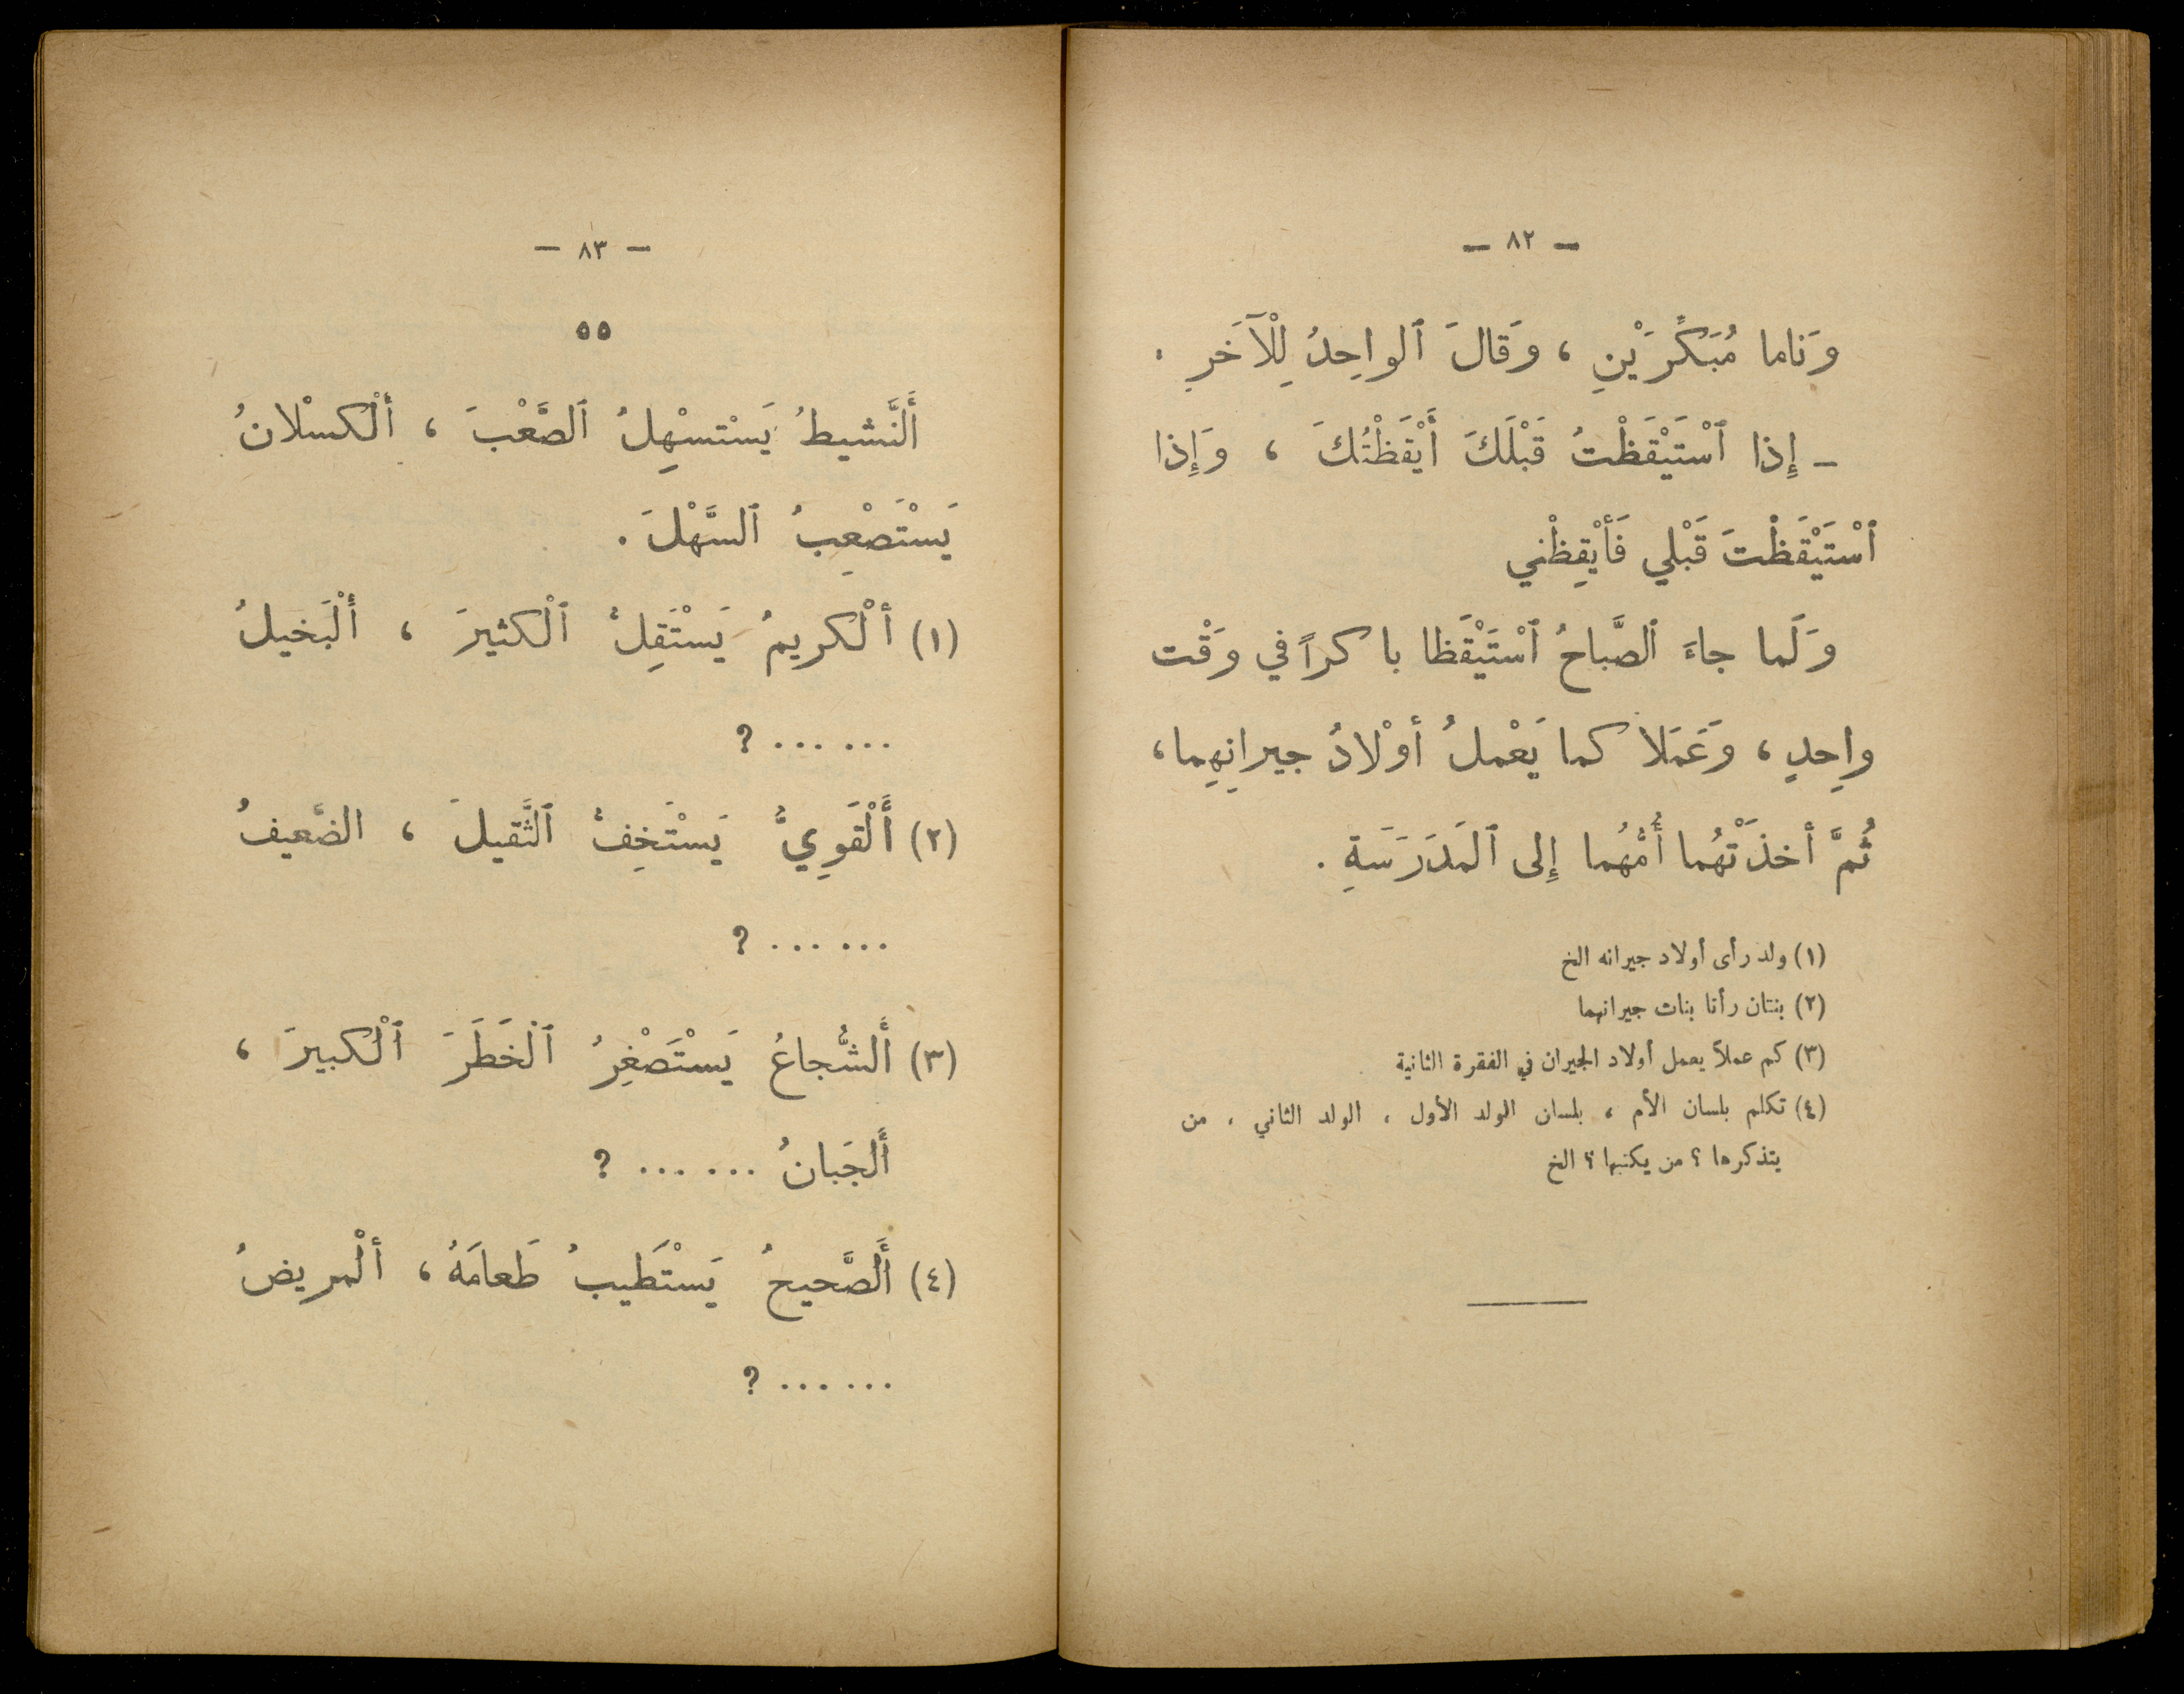 — ٨٢ —
وَناما مُبَكِّرَيْنِ ، وَقالَ ٱلواحِدُ لِلْآخَرِ .
– إِذا ٱسْتَيْقَظْتُ قَبْلَكَ أَيْقَظْتُكَ ، وَإِذا
ٱسْتَيْقَظْتَ قَبْلي فَأَيْقِظْني
وَلَما جاءَ ٱلصَّباحُ ٱسْتَيْقَظا باكراً في وَقْت
واحِدٍ ، وَعَمَلا كما يَعْملُ أوْلادُ جيرانِهِما ،
ثُمَّ أخذَتْهُما أُمُّهُما إِلى ٱلمَدَرَسَةِ .
(١) ولد رأى أولاد جيرانه الخ
(٢) بنتان رأتا بنات جيرانهما
(٣) كم عملاً يعمل أولاد الجيران في الفقرة الثانية
(٤) تكلم بلسان الأم ، بلسان الولد الأول ، الولد الثاني ، من
يتذكرها ؟ من يكتبها ؟ الخ
— ٨٣ —
٥٥
أَلنَّشيطُ يَسْتسْهِلُ ٱلصَّعْبَ ، ألْكسْلانُ
يَسْتَصْعِبُ ٱلسَّهْلَ .
(١) ألْكريمُ يَسْتَقِلُّ ٱلْكثيرَ ، ألْبَخيلُ
... ... ؟
(٢) أَلْقَوِيُّ يَسْتَخِفُّ ٱلثَّقيلَ ، الضَّعيفُ
... ... ؟
(٣) أَلشُّجاعُ يَسْتَصْغِرُ ٱلْخَطَرَ ٱلْكبيرَ ،
أَلجَبانُ ... ... ؟
(٤) أَلصَّحيحُ يَسْتَطيبُ طَعامَهُ ، ألْمريضُ
... ... ؟